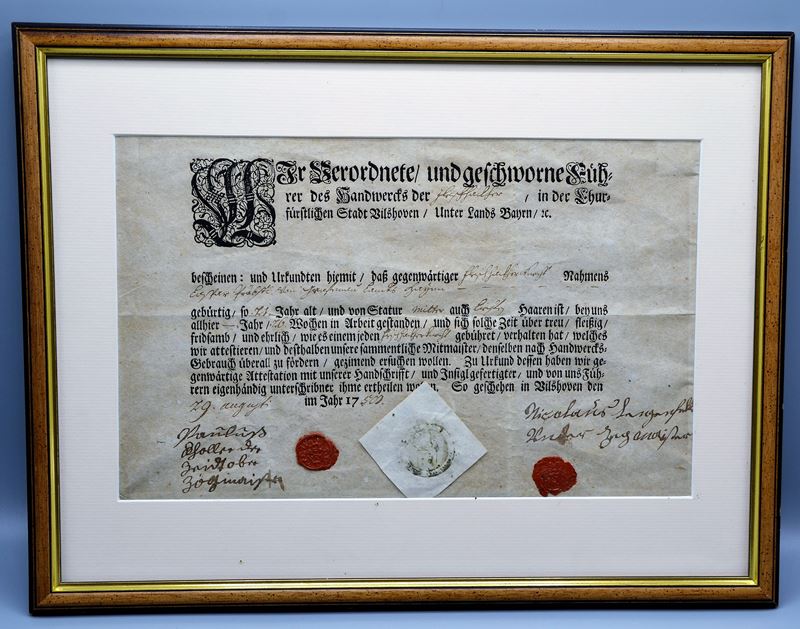 Wir Verordnete/ und geschworne Füh-
rer des Handwercks der , in der Chur-
fürstlichen Stadt Vilshoven/ Unter Lands Bayrn/ ꝛc.
bescheinen: und Urkundten hiemit/ daß gegenwärtiger Nahmens
gebürtig/ so 21. Jahr alt/ und von Statur mitter auch Haaren ist/ bey uns
allhier — Jahr/ Wochen in Arbeit gestanden/ und sich solche Zeit über treu/ fleißig/
fridsamb/ und ehrlich/ wie es einem jeden gebühret/ verhalten hat/ welches
wir attestieren/ und desthalben unsere sammentliche Mitmaister/ denselben nach Handwercks-
Gebrauch überall zu fördern/ gezimend ersuchen wollen. Zu Urkund dessen haben wir ge-
genwärtige Attestation mit unserer Handschrifft/ und Insigl gefertigter/ und von uns Füh-
rern eigenhändig unterschribner ihme ertheilen wollen. So geschehen in Vilshoven den
29. augusti im Jahr 17
Paulluß
Nicolaus